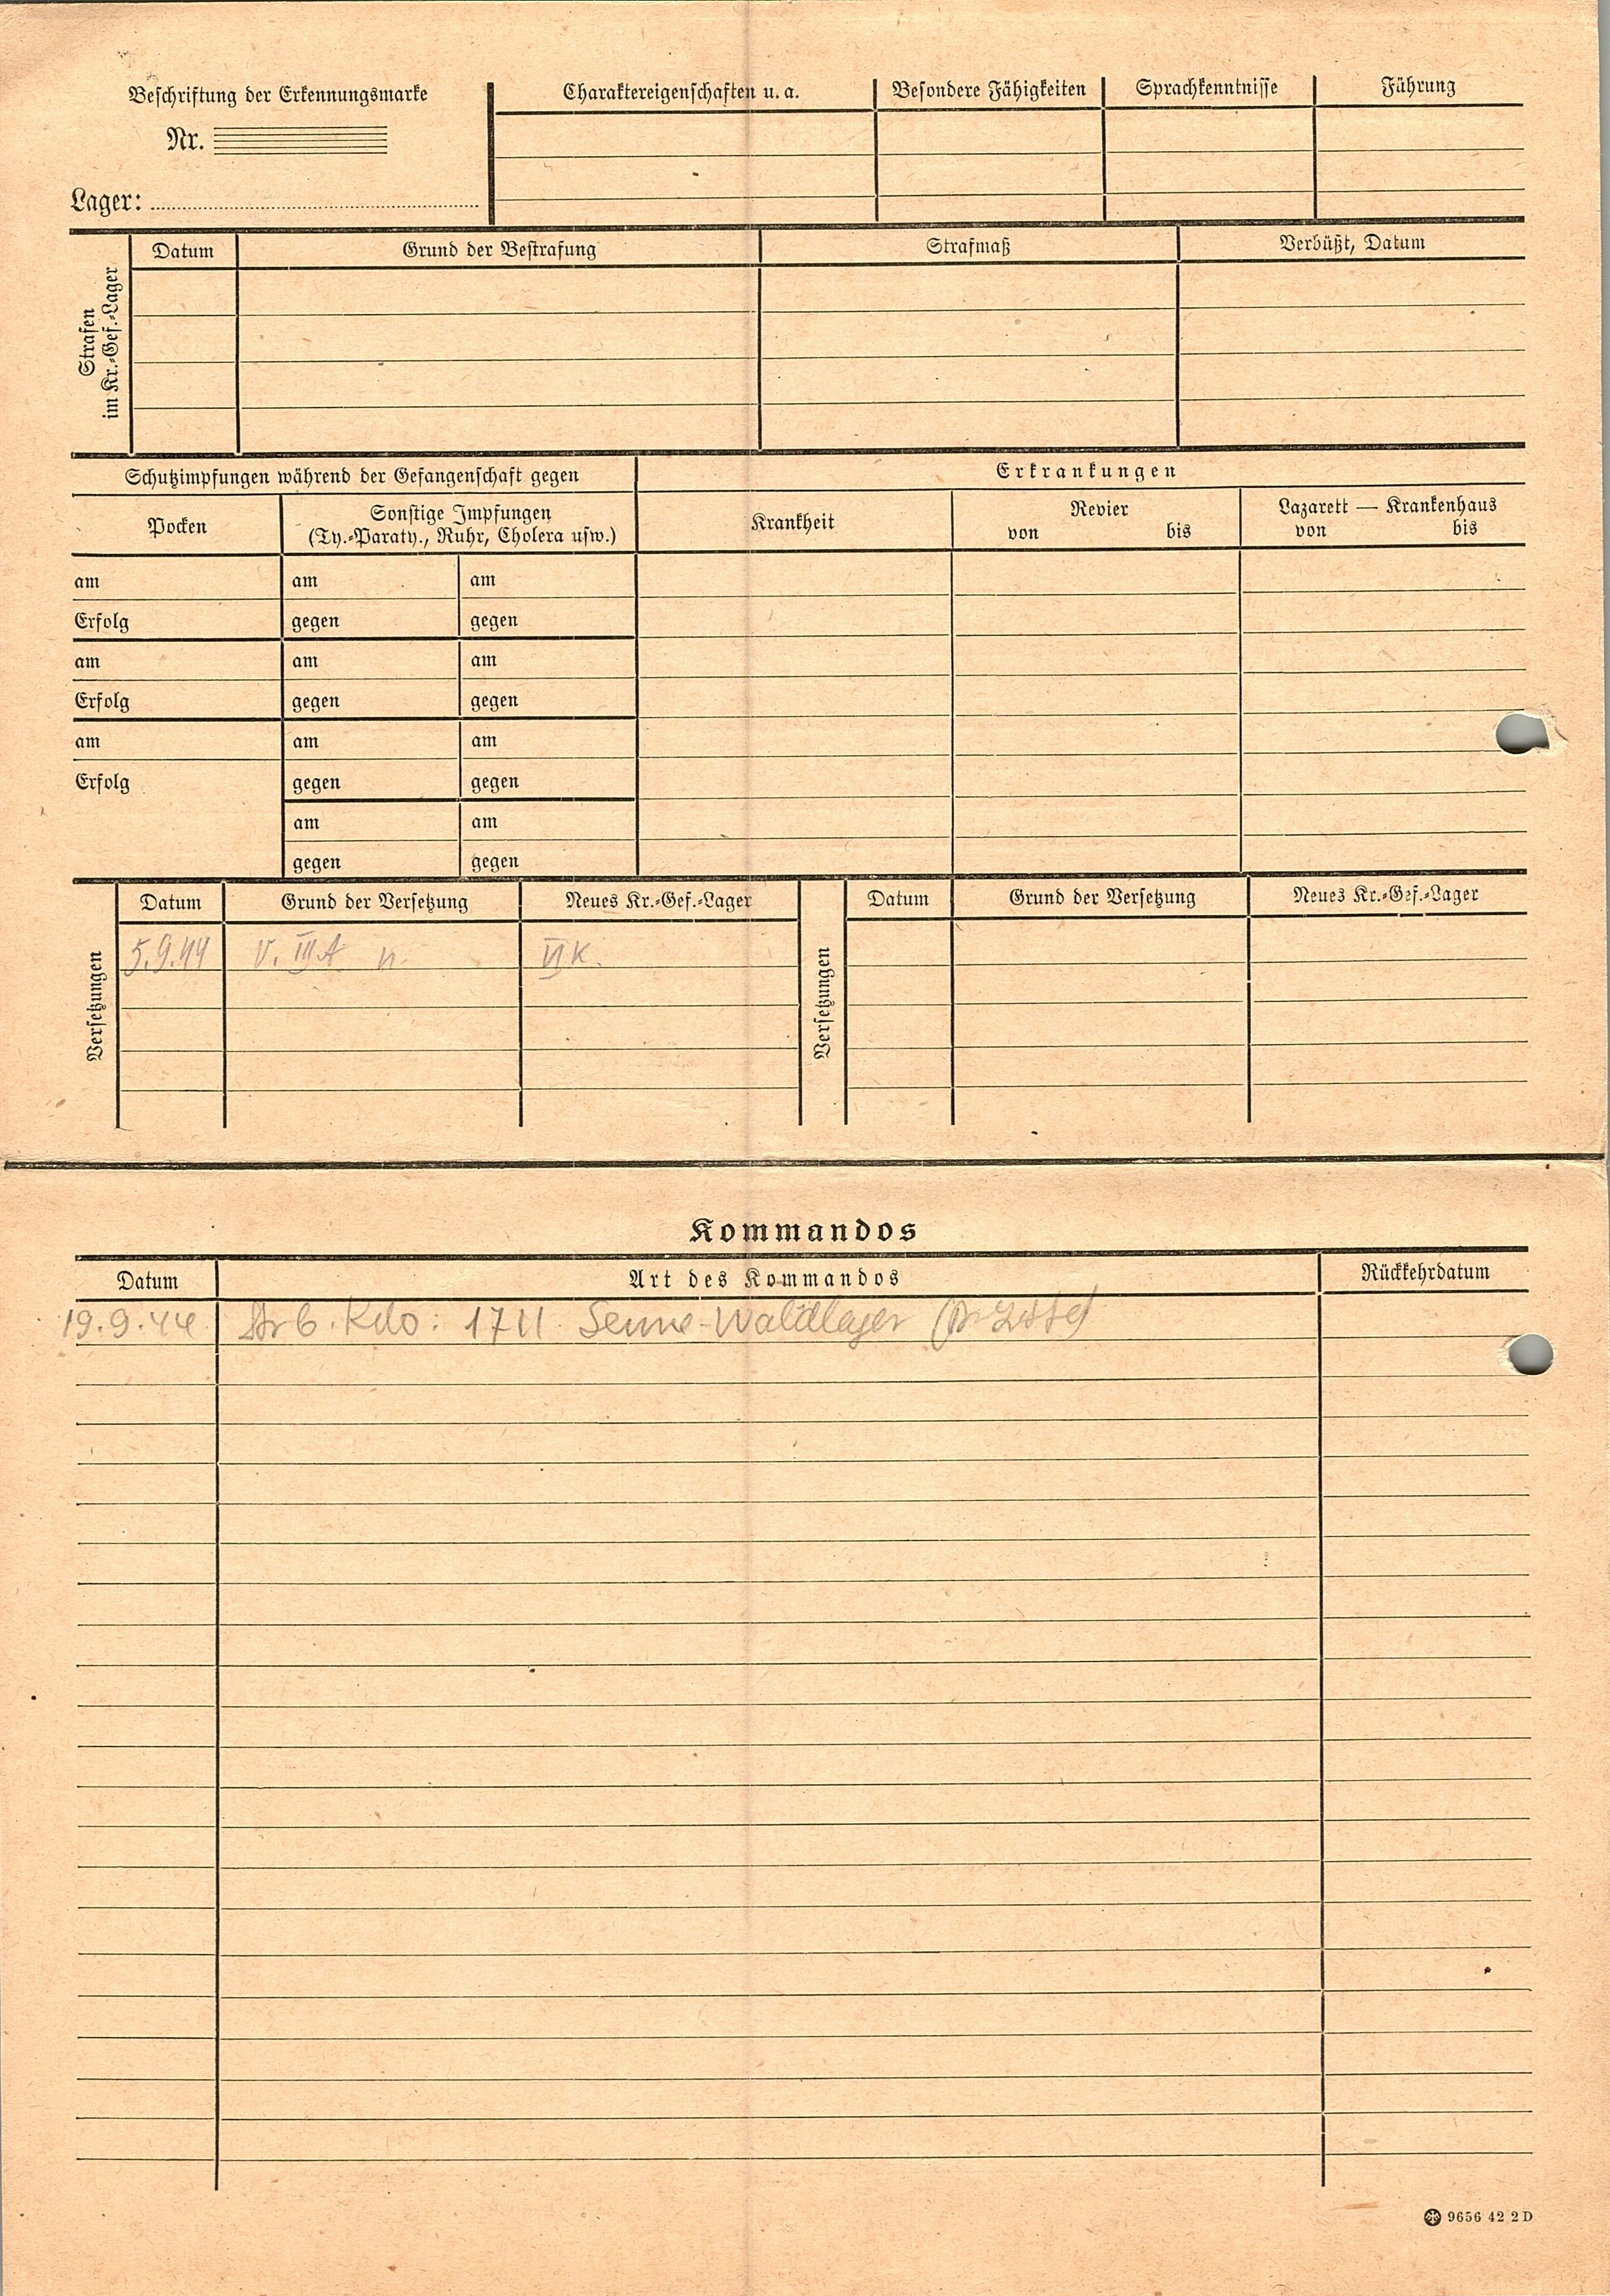 Beschriftung der Erkennungsmarke
Nr.
Lager:
Charaktereigenschaften u. a. Besondere Fähigkeiten Sprachkenntnisse Führung
Strafen
im Kr.-Gef.-Lager
Datum Grund der Bestrafung Strafmaß Verbüßt, Datum
Schutzimpfungen während der Gefangenschaft gegen
Pocken
Sonstige Impfungen
(Ty.-Paraty., Ruhr, Cholera usw.)
Erkrankungen
Krankheit
Revier
von bis
Lazarett — Krankenhaus
von bis
am am am
Erfolg gegen gegen
am am am
Erfolg gegen gegen
am am am
Erfolg gegen gegen
am am
gegen gegen
Versetzungen
Datum Grund der Versetzung Neues Kr.-Gef.-Lager
5.9.44 V. III A n. VI K.
Versetzungen
Datum Grund der Versetzung Neues Kr.-Gef.-Lager
Kommandos
Datum Art des Kommandos Rückkehrdatum
19.9.44 Arb. Kdo: 1711 Senne-Waldlager
9656 42 2 D